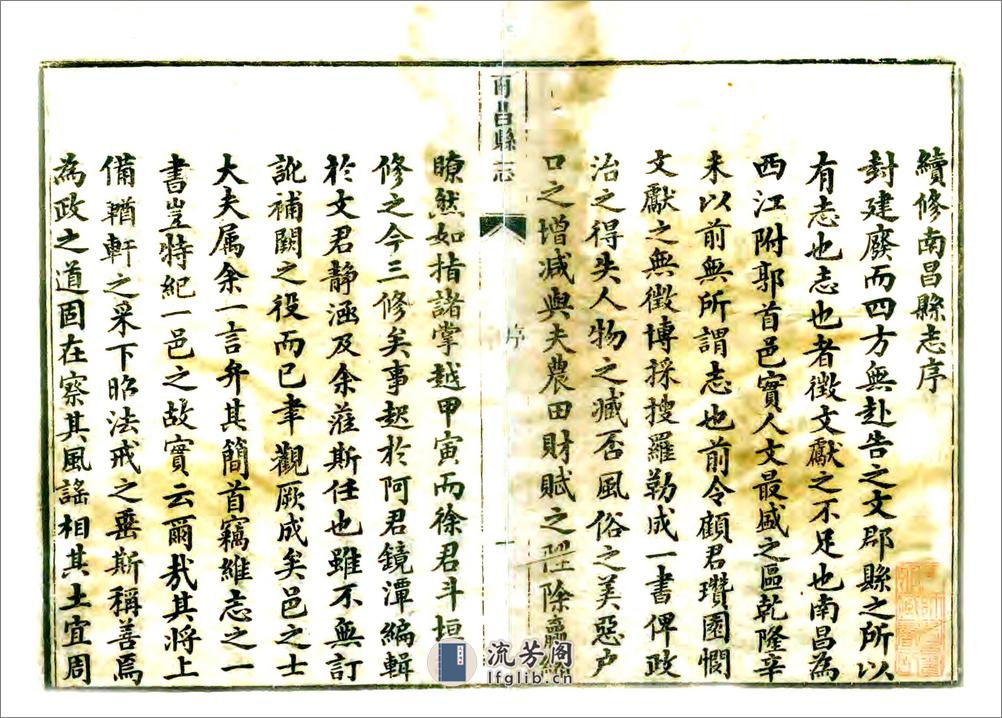 續修南昌縣志序
封建廢而四方無赴告之文郡縣之所以
有志也志也者徵文獻之不足也南昌為
西江附郭首邑實人文最盛之區乾隆辛
未以前無所謂志也前令顧君瓚園憫
文獻之無徵博採搜羅勒成一書俾政
治之得失人物之臧否風俗之美惡户
口之增減與夫農田財賦之陞除
南昌縣志
序
一
瞭然如指諸掌越甲寅而徐君斗垣
修之今三修矣事起於阿君鏡潭編輯
於文君靜涵及余蒞斯任也雖不無訂
訛補闕之役而已幸觀厥成矣邑之士
大夫属余一言弁其簡首竊維志之一
書豈特紀一邑之故實云爾哉其將上
備輶軒之采下昭法戒之垂斯稱善焉
為政之道固在察其風謠相其土宜周
流芳阁
lfglib.cn